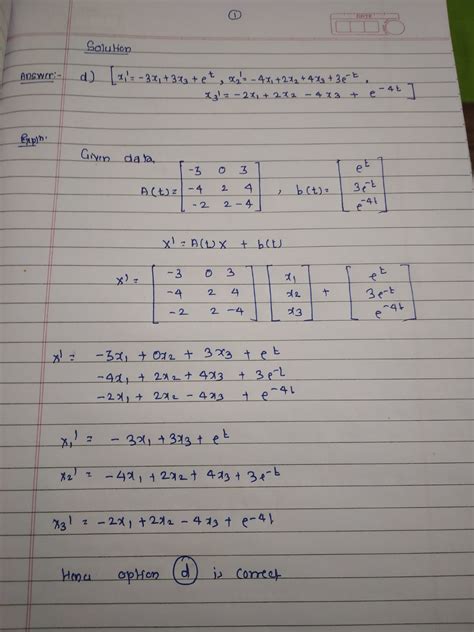 ①
DATE
Solution
Answer:- d) [x₁' = -3x₁+3x₃+e^t, x₂' = -4x₁+2x₂+4x₃+3e^-t,
x₃' = -2x₁+2x₂ -4x₃ + e^-4t]
Expln.
Given data,
A(t) = [-3 0 3; -4 2 4; -2 2 -4], b(t) = [e^t; 3e^-t; e^-4t]
x' = A(t)x + b(t)
x' = [-3 0 3; -4 2 4; -2 2 -4] [x₁; x₂; x₃] + [e^t; 3e^-t; e^-4t]
x' = -3x₁ + 0x₂ + 3x₃ + e^t
-4x₁ + 2x₂ + 4x₃ + 3e^-t
-2x₁ + 2x₂ - 4x₃ + e^-4t
x₁' = -3x₁+3x₃+e^t
x₂' = -4x₁+2x₂+4x₃+3e^-t
x₃' = -2x₁+2x₂-4x₃+e^-4t
Hence option ⓓ is correct